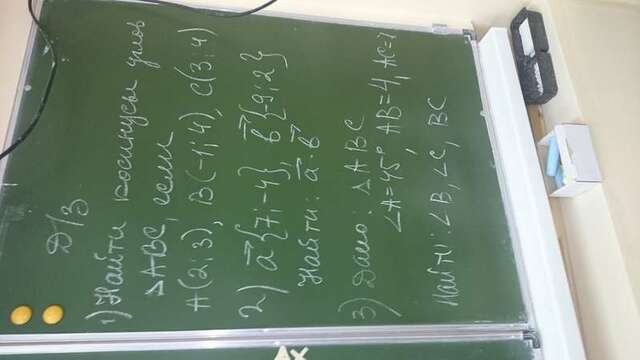 Д/З
1) Найти косинусы углов
△ABC, если
A(2; 3), B(-1; 4), C(3; 4)
2) a⃗{7; -4}, b⃗{-9; 2}
Найти: a⃗ · b⃗
3) Дано: △ABC
∠A=45°, AB=4, AC=
Найти: ∠B, ∠C, BC
Ax